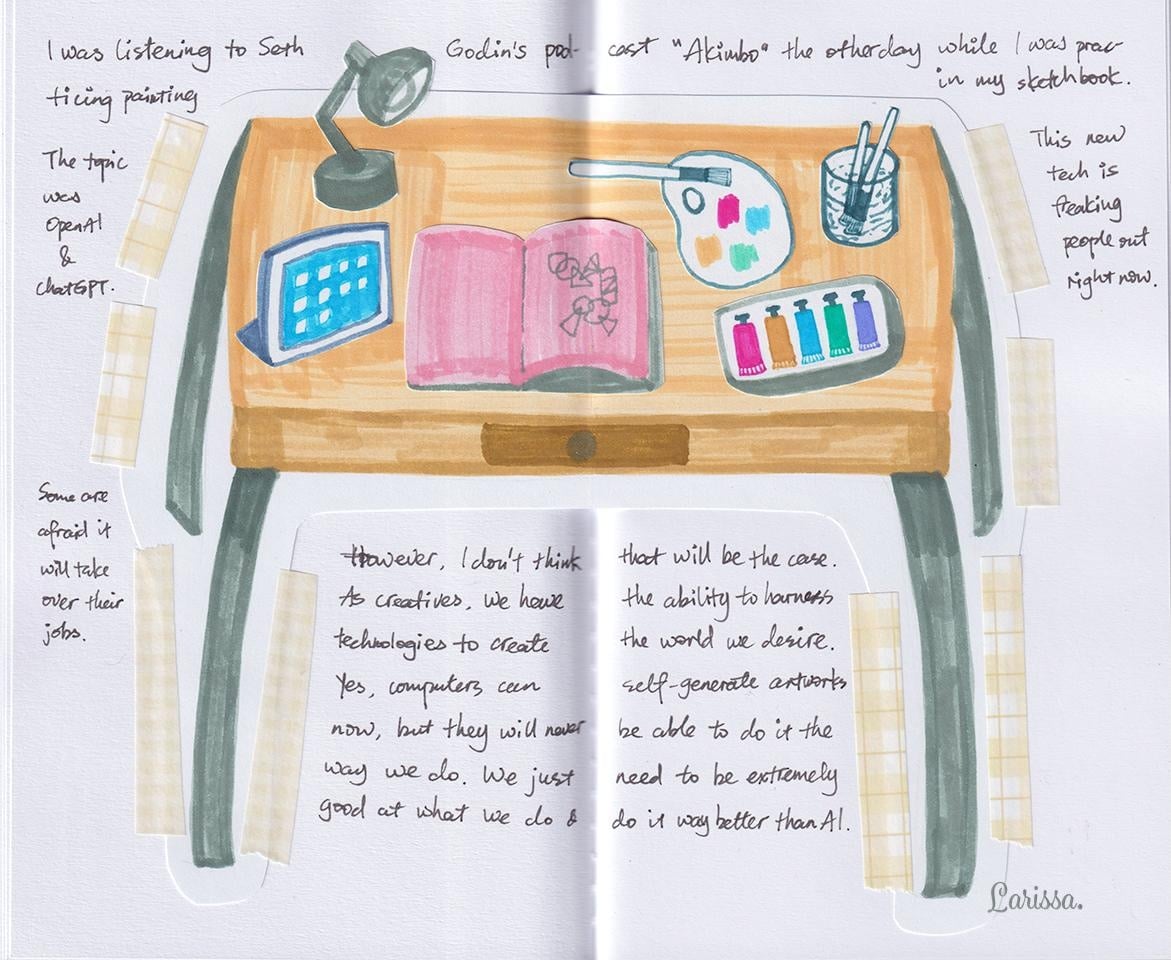 I was listening to Seth Godin's pod- cast "Akimbo" the other day while I was prac-
ticing painting in my sketchbook.
The topic
was
OpenAI
&
chatGPT.
This new
tech is
freaking
people out
right now.
Some are
afraid it
will take
over their
jobs.
However, I don't think that will be the case.
As creatives, we have the ability to harness
technologies to create the world we desire.
Yes, computers can self-generate artworks
now, but they will never be able to do it the
way we do. We just need to be extremely
good at what we do & do it way better than AI.
Larissa.